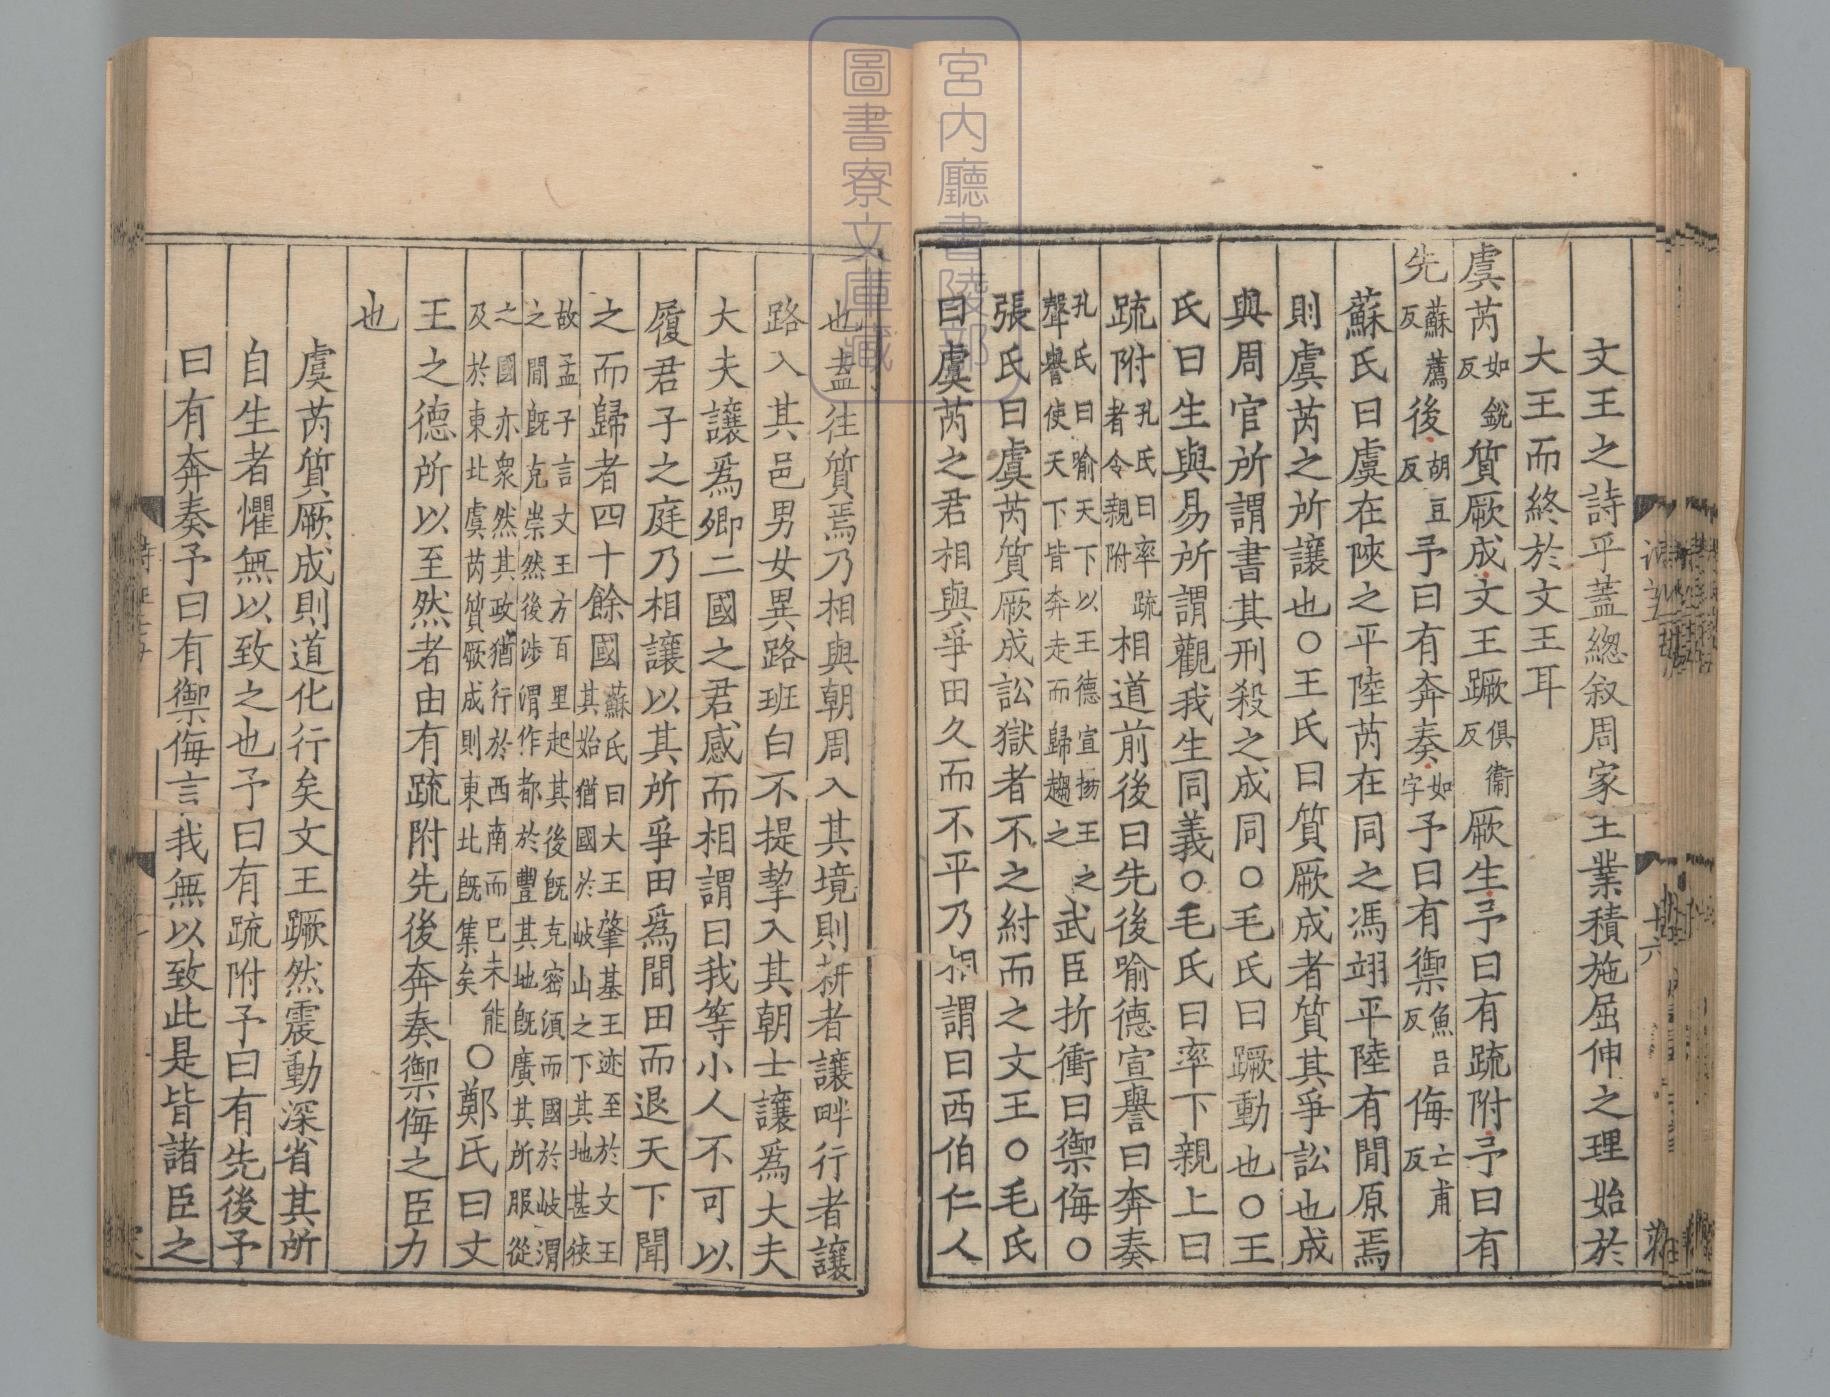 文王之詩乎蓋緫叙周家王業積施屈伸之理始於
大王而終於文王耳
虞芮如銳反質厥成文王蹶俱衞反厥生予曰有疏附予曰有
先蘇薦反後胡豆反予曰有奔奏如字予曰有禦魚呂反侮亡甫反
蘇氏曰虞在陜之平陸芮在同之馮翊平陸有閒原焉
則虞芮之所讓也○王氏曰質厥成者質其爭訟也成
與周官所謂書其刑殺之成同○毛氏曰蹶動也○王
氏曰生與易所謂觀我生同義○毛氏曰率下親上曰
疏附孔氏曰率疏者令親附相道前後曰先後喻德宣譽曰奔奏
孔氏曰喻天下以王德宣揚王之聲譽使天下皆奔走而歸趨之武臣折衝曰禦侮○
張氏曰虞芮質厥成訟獄者不之紂而之文王○毛氏
曰虞芮之君相與爭田久而不平乃相謂曰西伯仁人
也盍往質焉乃相與朝周入其境則耕者讓畔行者讓
路入其邑男女異路班白不提挈入其朝士讓爲大夫
大夫讓爲卿二國之君感而相謂曰我等小人不可以
履君子之庭乃相讓以其所爭田爲閒田而退天下聞
之而歸者四十餘國蘇氏曰大王肇基王迹至於文王其始猶國於岐山之下其地甚狹
故孟子言文王方百里起其後旣克密須而國於岐渭之閒旣克崇然後涉渭作都於豐其地旣廣其所服從
之國亦衆然其政猶行於西南而已未能及於東北虞芮質厥成則東北旣集矣○鄭氏曰文
王之德所以至然者由有疏附先後奔奏禦侮之臣力
也
虞芮質厥成則道化行矣文王蹶然震動深省其所
自生者懼無以致之也予曰有疏附予曰有先後予
曰有奔奏予曰有禦侮言我無以致此是皆諸臣之
宮内廳書陵部
圖書寮文庫藏